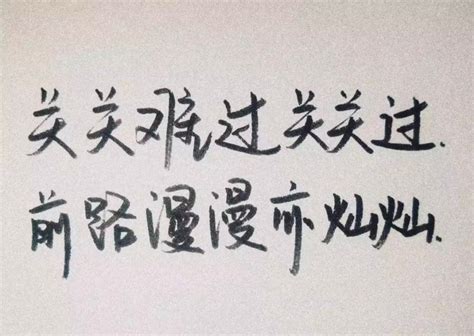 关关难过关关过.
前路漫漫亦灿灿.